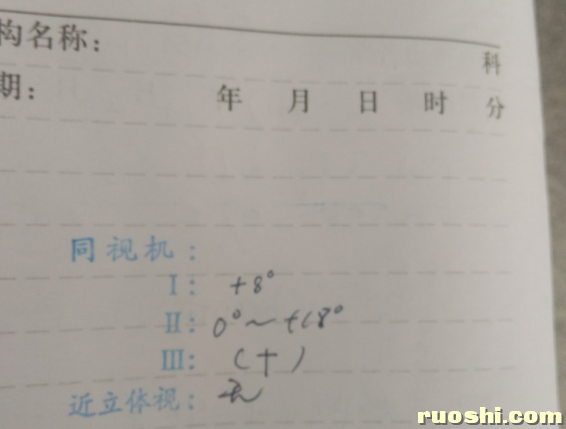 构名称:
科
期: 年 月 日 时 分
同视机:
I: +8°
II: 0°~+18°
III: (+)
近立体视: 无
ruoshi.com